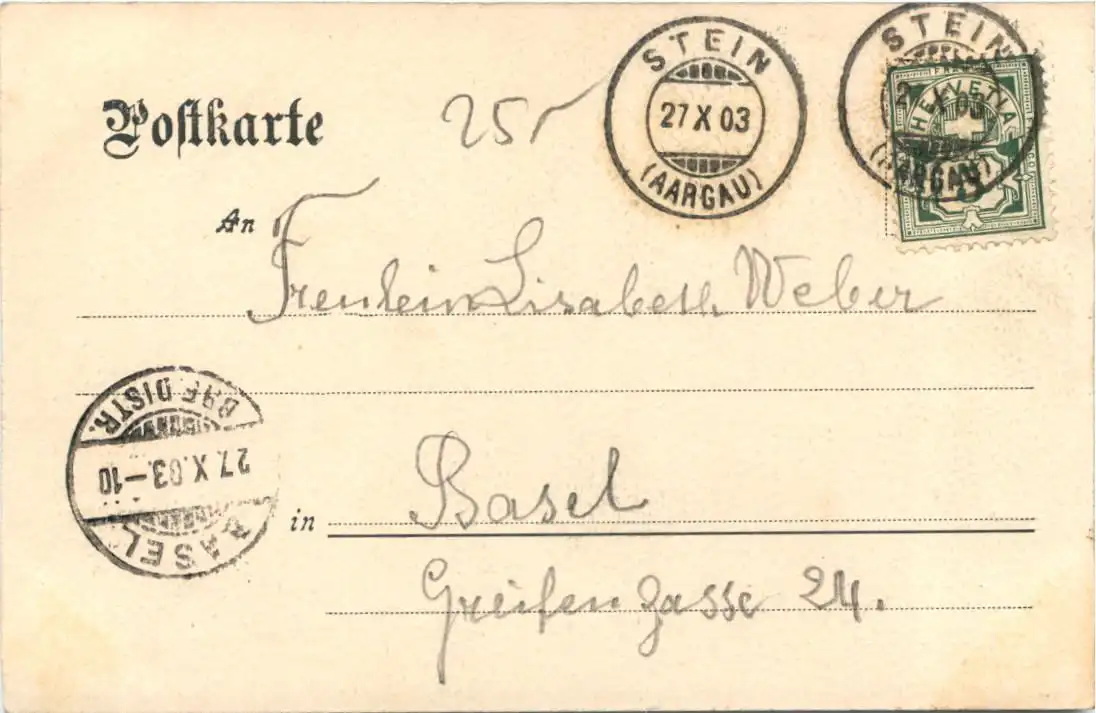 STEIN
27 X 03
(AARGAU)
STEIN
(AARGAU)
FRANCO
HELVETIA
5
Postkarte
An
Freulein Lisabeth Weber
BRF. DISTR.
27.X.03.-10
BASEL
in
Basel
Greifengasse 24.